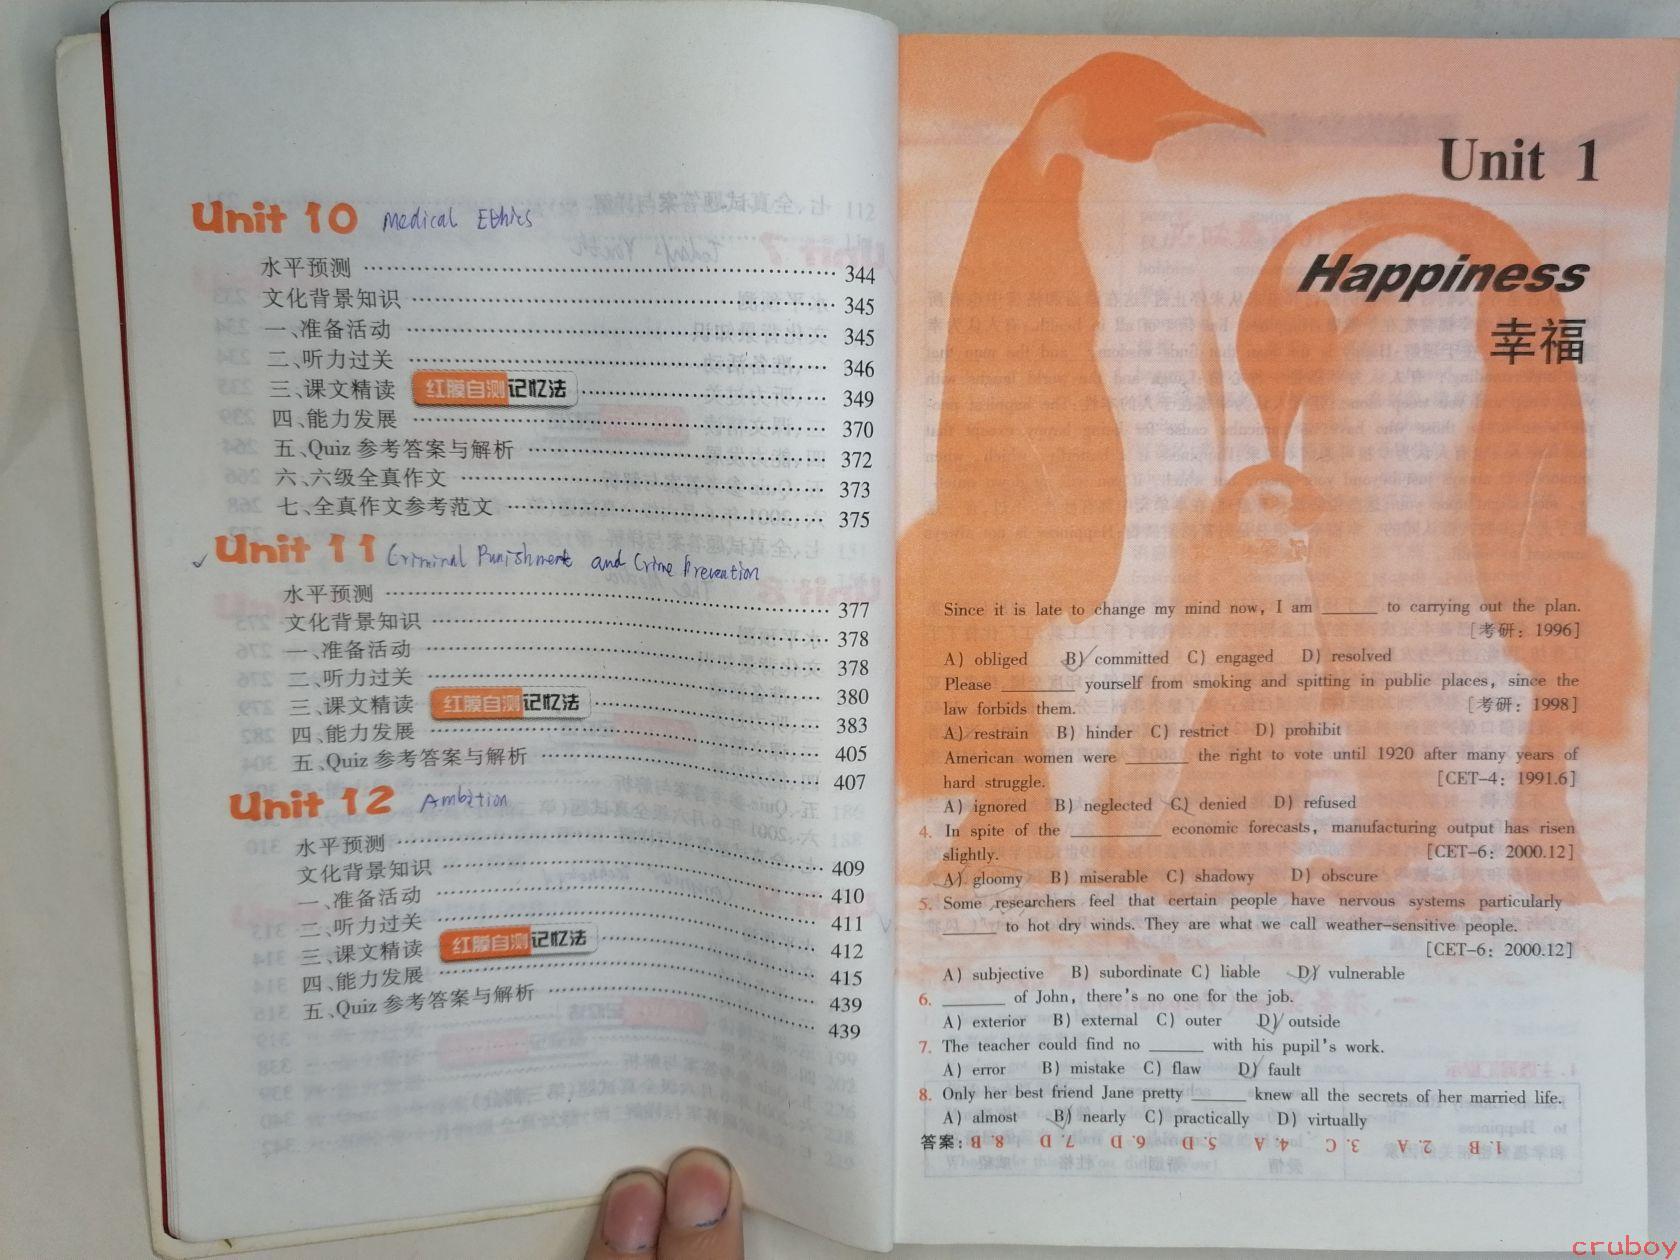 Unit 10 Medical Ethics
水平预测 344
文化背景知识 345
一、准备活动 345
二、听力过关 346
三、课文精读 红膜自测记忆法 349
四、能力发展 370
五、Quiz 参考答案与解析 372
六、六级全真作文 373
七、全真作文参考范文 375
Unit 11 Criminal Punishment and Crime Prevention
水平预测 377
文化背景知识 378
一、准备活动 378
二、听力过关 380
三、课文精读 红膜自测记忆法 383
四、能力发展 405
五、Quiz 参考答案与解析 407
Unit 12 Ambition
水平预测 409
文化背景知识 410
一、准备活动 411
二、听力过关 412
三、课文精读 红膜自测记忆法 415
四、能力发展 439
五、Quiz 参考答案与解析 439
Unit 1
Happiness
幸福
Since it is late to change my mind now, I am ______ to carrying out the plan.
[考研: 1996]
A) obliged B) committed C) engaged D) resolved
Please ________ yourself from smoking and spitting in public places, since the
law forbids them. [考研: 1998]
A) restrain B) hinder C) restrict D) prohibit
American women were _______ the right to vote until 1920 after many years of
hard struggle. [CET-4: 1991.6]
A) ignored B) neglected C) denied D) refused
4. In spite of the __________ economic forecasts, manufacturing output has risen
slightly. [CET-6: 2000.12]
A) gloomy B) miserable C) shadowy D) obscure
5. Some researchers feel that certain people have nervous systems particularly
______ to hot dry winds. They are what we call weather-sensitive people.
[CET-6: 2000.12]
A) subjective B) subordinate C) liable D) vulnerable
6. _______ of John, there's no one for the job.
A) exterior B) external C) outer D) outside
7. The teacher could find no ______ with his pupil's work.
A) error B) mistake C) flaw D) fault
8. Only her best friend Jane pretty ______ knew all the secrets of her married life.
A) almost B) nearly C) practically D) virtually
答案: 1. B 2. A 3. C 4. A 5. D 6. D 7. D 8. B
cruboy